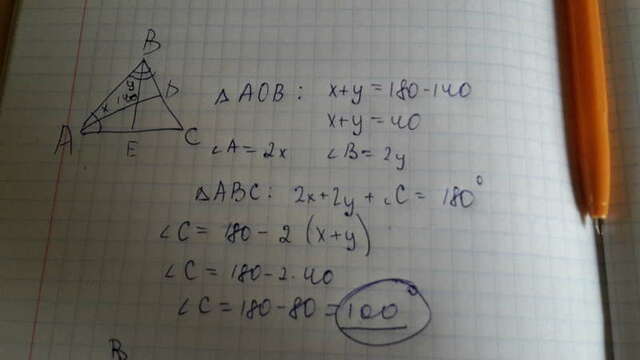 B
y
D
x 140
A E C
△ AOB: x+y = 180-140
x+y = 40
∠A = 2x ∠B = 2y
△ABC: 2x+2y+∠C = 180°
∠C = 180-2(x+y)
∠C = 180-2·40
∠C = 180-80 = 100°
B